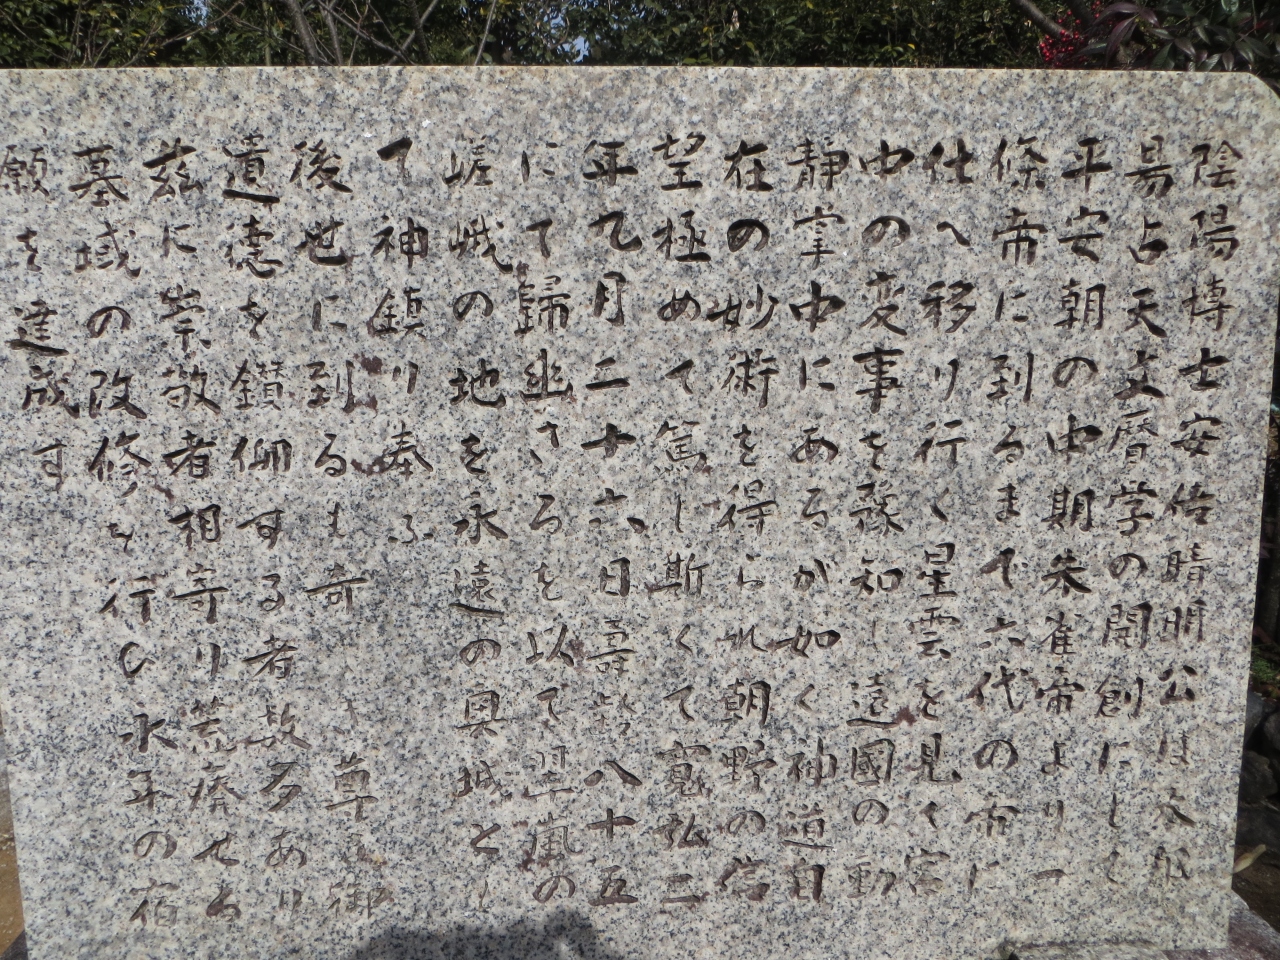 陰陽博士安倍晴明公は本朝
易占天文暦学の開創にして
平安朝の中期朱雀帝より一
條帝に到るまで六代の帝に
仕へ移り行く星雲を見く宮
中の変事を豫知し遠國の動
静掌中にあるが如く神道自
在の妙術を得られ朝野の信
望極めて篤し斯くて寛弘二
年九月二十六日壽齢八十五
にて歸幽さるを以て翠嵐の
嵯峨の地を永遠の奥城とし
て神鎮り奉ふ
後世に到るも奇しき尊き御
遺徳を鑚仰する者数多あり
茲に崇敬者相寄り荒廃せる
墓域の改修を行ひ永年の宿
願を達成す